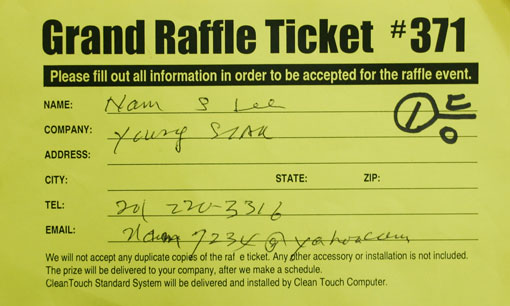 Grand Raffle Ticket #371
Please fill out all information in order to be accepted for the raffle event.
NAME: Nam S Lee
COMPANY: Young Star
ADDRESS:
CITY: STATE: ZIP:
TEL: 201 220-3316
EMAIL: @yahoo.com
We will not accept any duplicate copies of the raf e ticket. Any other accessory or installation is not included.
The prize will be delivered to your company, after we make a schedule.
CleanTouch Standard System will be delivered and installed by Clean Touch Computer.